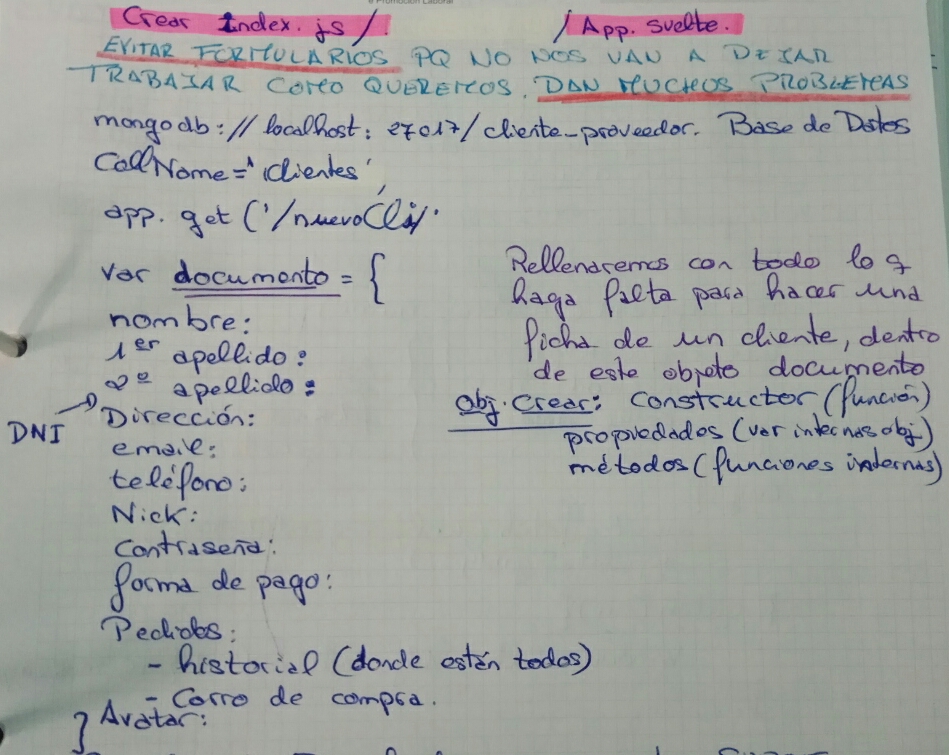 Promoción Laboral
Crear Index.js/. /App.svelte.
EVITAR FORMULARIOS PQ NO NOS VAN A DEJAR
TRABAJAR COMO QUEREMOS. DAN MUCHOS PROBLEMAS
mongodb://localhost:27017/cliente_proveedor. Base de Datos
CollName='clientes'
app.get('/nuevoCli'
var documento = {
nombre:
1er apellido:
2º apellido:
DNI
Dirección:
email:
teléfono:
Nick:
Contraseña:
forma de pago:
Pedidos:
- historial (donde están todos)
- Carro de compra.
} Avatar:
Rellenaremos con todo lo q
haga falta para hacer una
ficha de un cliente, dentro
de este objeto documento
Obj. Crear: constructor (función)
propiedades (var internas obj)
métodos (funciones internas)